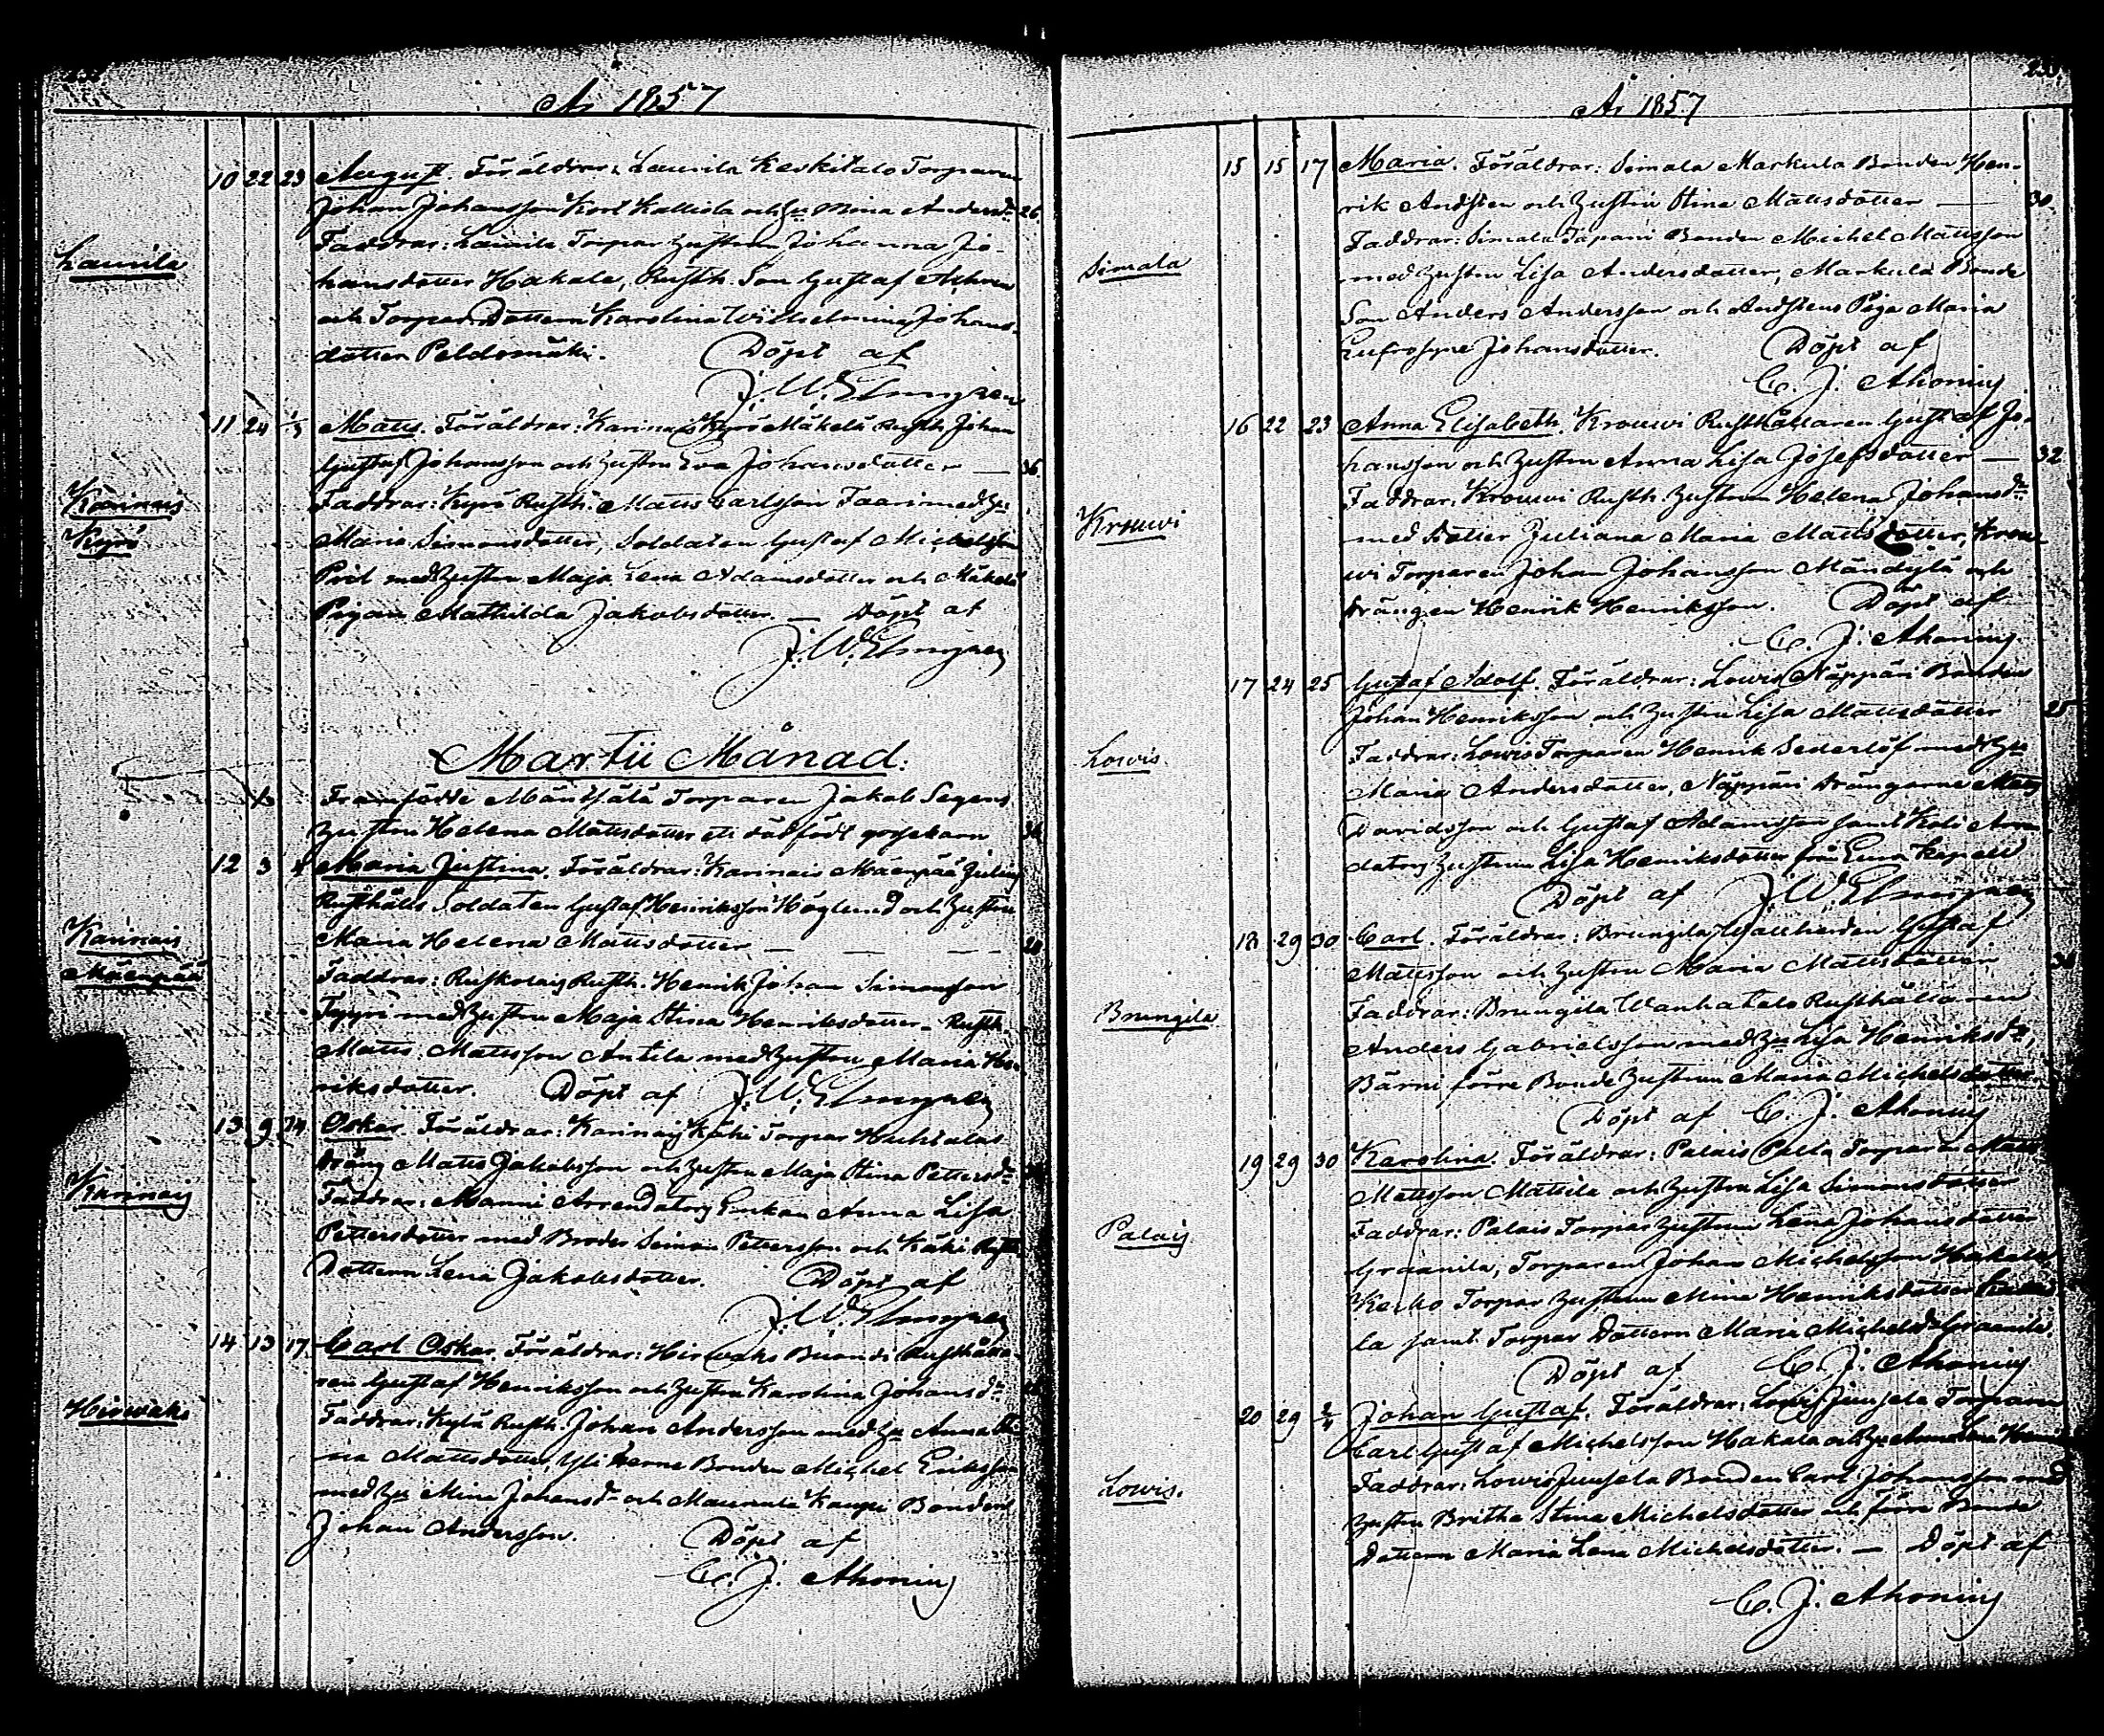 År 1857
10 22 23 August. Föräldrar: Laurila Keskitalo Torparen
Johan Johansson Kort Kalliola och Hu Mina Andersdr 26.
Faddrar: Laurila Torpar hustrun Johanna Jo-
Laurila
hansdotter Hakala, Rusth. Son Gustaf
och Torpar Dottern Karolina Wilhelmina Johans-
dotter Peldomäki. Döpt af
J. W. Elmgren
11 24 1/3 Matts. Föräldrar: Karinais Kyrö Mäkelä Rusth. Johan
Gustaf Johansson och hustru Eva Johansdotter — 36
Karinais
Kyrö
Faddrar: Kyrö Rusth. Matts Carlsson Faari med hu
Maria Simonsdotter, Soldaten Gustaf Michelsson
Pril med hustru Maja Lena Adamsdotter och Mäkelä
Pigan Mathilda Jakobsdotter — Döpt af
J. W. Elmgren
Martii Månad.
Framfödde Mäntsälä Torparen Jakob Segers
hustru Helena Mattsdotter ett dödfödt gossebarn
12 3 Maria Justina. Föräldrar: Karinais Mäenpää Julius
Rusthålls Soldaten Gustaf Henriksson Höglund och hustru
Karinais
Mäenpää
Maria Helena Mattsdotter — — —
Faddrar: Ruskolais Rusth. Henrik Johan Simonsson
Tyyri med hustru Maja Stina Henriksdotter - Rusth.
Matts Mattsson Antila med hustru Maria Hen-
riksdotter. Döpt af J. W. Elmgren
13 9 14 Oskar. Föräldrar: Karinais Käki Torpar Huhtalas
dräng Matts Jakobsson och hustru Maja Stina Pettersdr
Karinais
Faddrar: Manni Arrendators Enkan Anna Lisa
Pettersdotter med Broder Simon Pettersson och Käki Rusth.
Dottern Lena Jakobsdotter. Döpt af
J. W. Elmgren
14 13 17 Carl Oskar. Föräldrar: Hirwoks Buandi Rusthålla-
ren Gustaf Henriksson och hustru Karolina Johansdr
Hirwoks
Faddrar: Kylä Rusth. Johan Andersson med hu Anna Sti-
na Mattsdotter, Yli Kerra Bonden Michel Eriksson
med hu Mina Johansdr och Maunula Kaupi Bonden
Johan Andersson. Döpt af
C. J. Ahonius
År 1857
15 15 17 Maria. Föräldrar: Simala Markula Bonden Hen-
rik Andsten och hustru Stina Mattsdotter — 30.
Simala
Faddrar: Simala Tapani Bonden Michel Mattsson
med hustru Lisa Andersdotter, Markula Bonde
Son Anders Andersson och Andstens Piga Maria
Eufrosyne Johansdotter. Döpt af
C. J. Ahonius
16 22 23 Anna Elisabeth. Krouwi Rusthållaren Gustaf Jo-
hansson och hustru Anna Lisa Josefsdotter — 32
Krouwi
Faddrar: Krouwi Rusth. hustrun Helena Johansdr
med dotter Juliana Maria Mattsdotter, Krou-
wi Torparen Johan Johansson Mändylä och
drängen Henrik Henriksson. Döpt af
C. J. Ahonius
17 24 25 Gustaf Adolf. Föräldrar: Lowis Näppäri Bonden
Johan Henriksson och hustru Lisa Mattsdotter 25
Lowis.
Faddrar: Lowis Torparen Henrik Sederlöf med hu
Maria Andersdotter, Näppäri drängarne Matts
Davidsson och Gustaf Adamsson samt
dators hustrun Lisa Henriksdotter från Eura Kapell
Döpt af J. W. Elmgren
18 29 30 Carl. Föräldrar: Brungila Wallherden Gustaf
Mattsson och hustru Maria Mattsdotter
Brungila
Faddrar: Brungila Wanhatalo Rusthållaren
Anders Gabrielsson med hu Lisa Henriksdr,
Bärni förre Bonde hustrun Maria Michelsdotter
Döpt af C. J. Ahonius
19 29 30 Karolina. Föräldrar: Palais Palla Torparen Matts
Mattsson Mattila och hustru Lisa Simonsdotter
Palais
Faddrar: Palais Torpar hustrun Lena Johansdotter
Graanila, Torparen Johan Michelsson Hakala,
Keiho Torpar hustrun Mina Henriksdotter
la samt Torpar Dottern Maria Michelsdr Graanila.
Döpt af C. J. Ahonius
20 29 2/4 Johan Gustaf. Föräldrar: Lowis Juusela Torparen
Carl Gustaf Michelsson Hakala och hu Anna Lisa
Lowis.
Faddrar: Lowis Juusela Bonden Carl Johansson med
hustru Britha Stina Michelsdotter och förre Bonde
Dottern Maria Lena Michelsdotter. — Döpt af
C. J. Ahonius